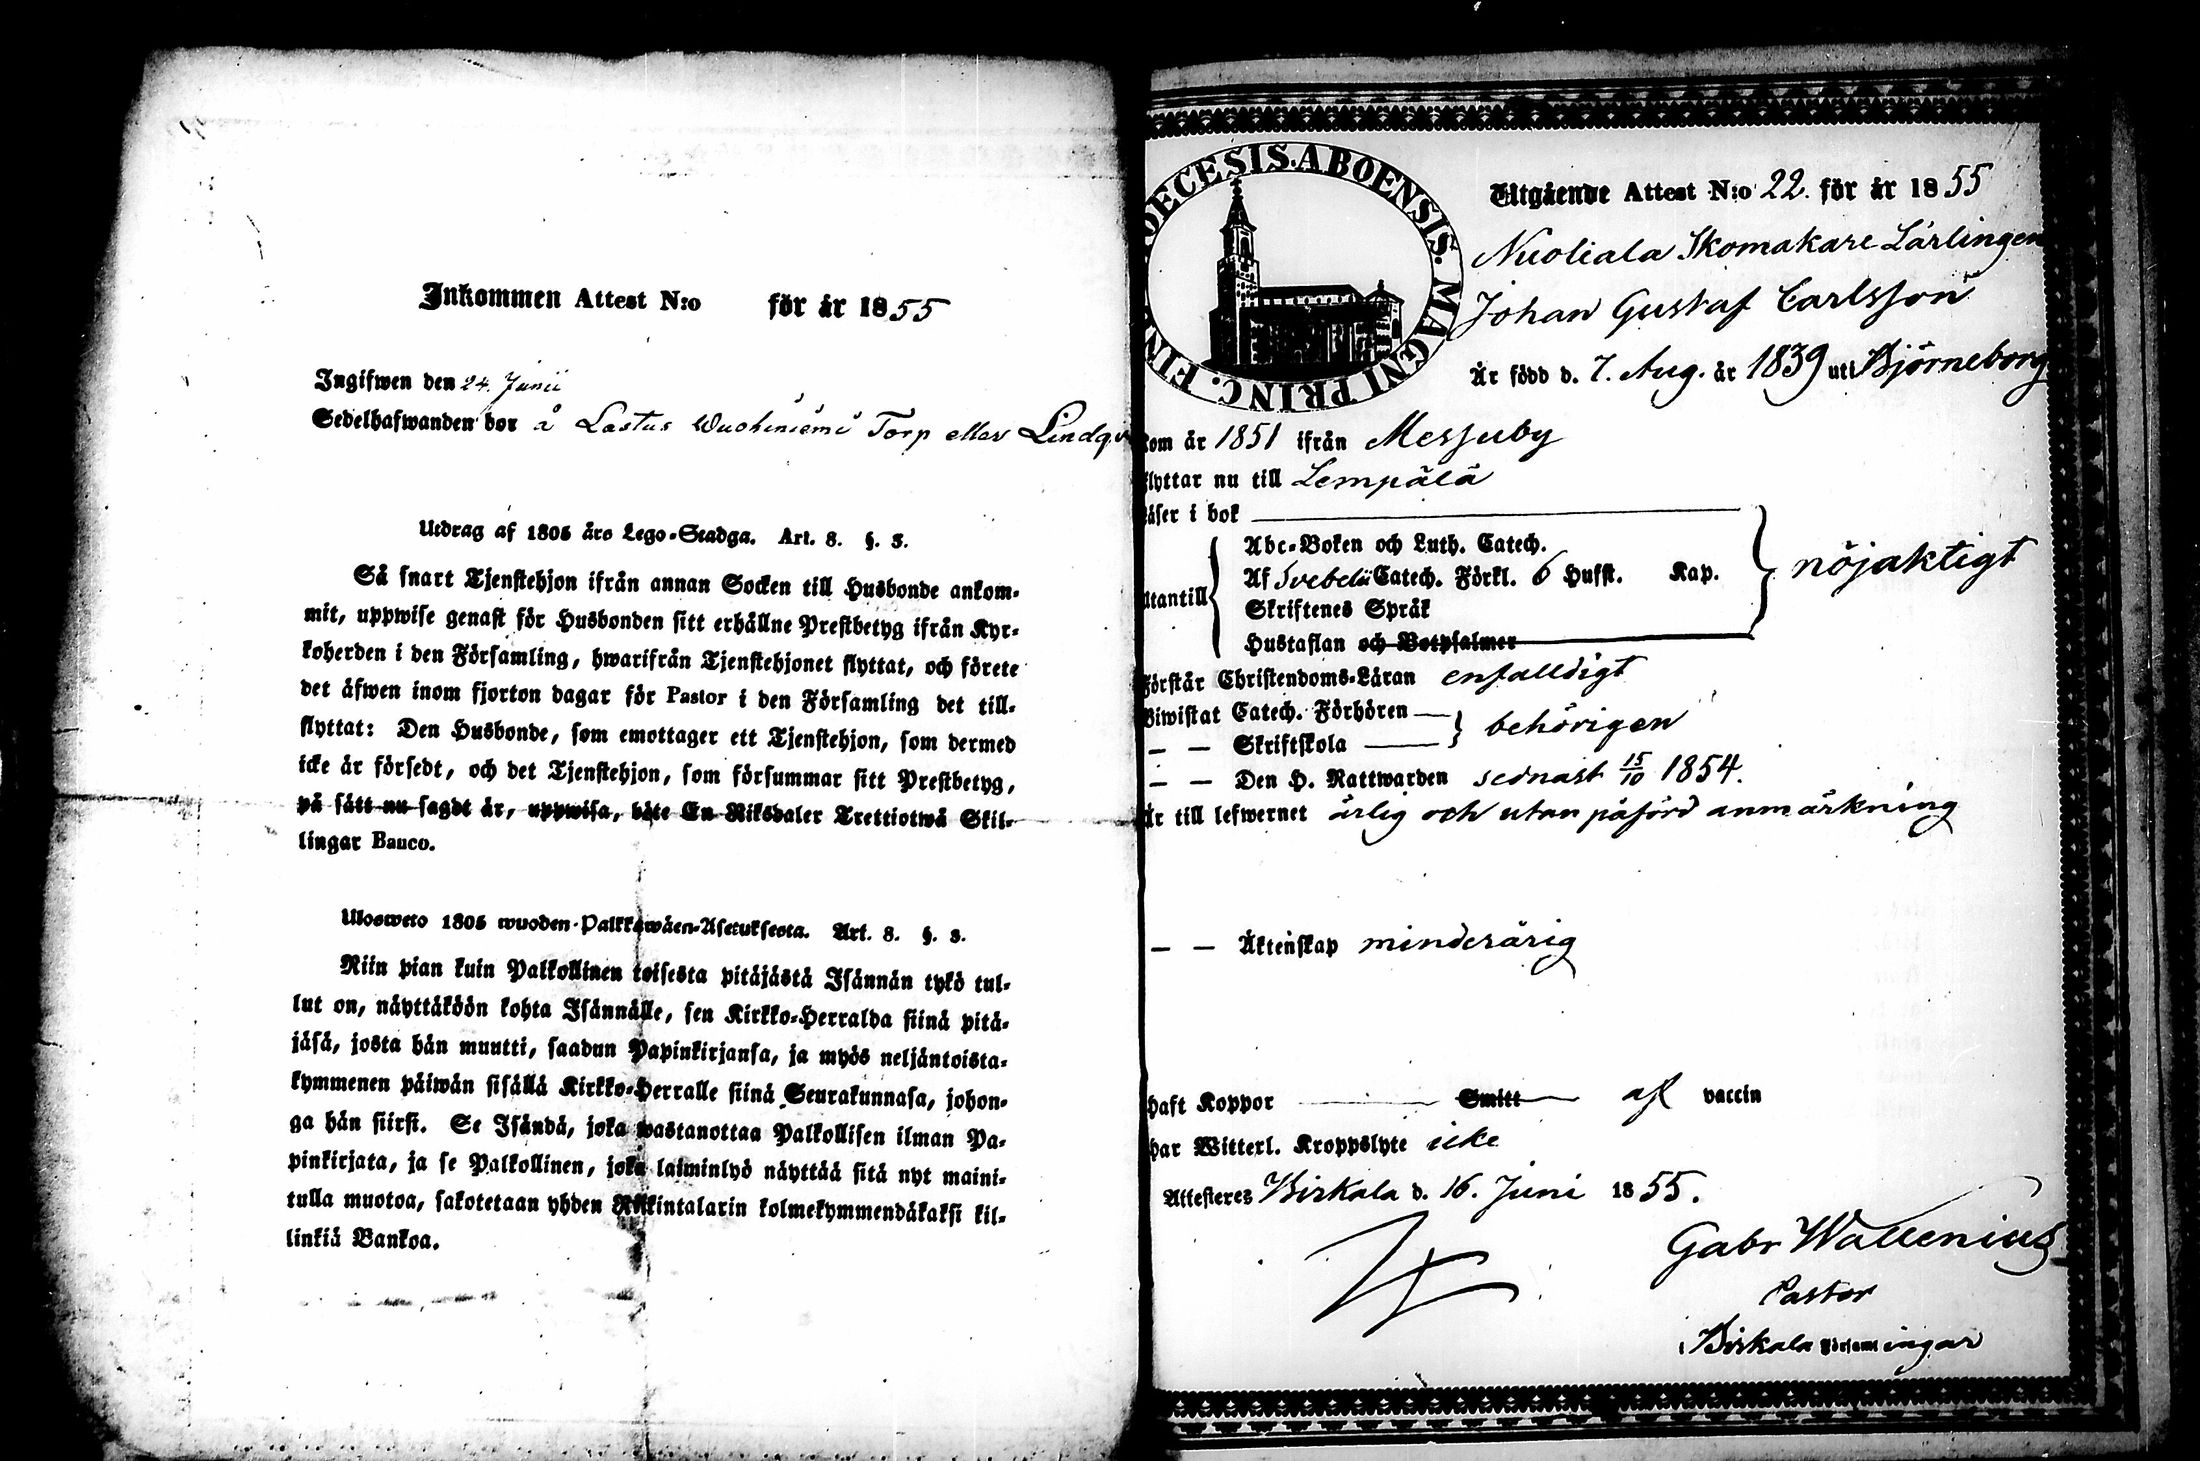 Inkommen Attest N:o för år 1855
Ingifwen den 24. Junii
Sedelhafwanden bor å Lastus Wuohiniemi Torp eller Lindqv
Utdrag af 1805 års Lego-Stadga. Art. 8. §. 3.
Så snart Tjenstehjon ifrån annan Socken till Husbonde ankom-
mit, uppwise genast för Husbonden sitt erhållne Prestbetyg ifrån Kyr-
koherden i den Församling, hwarifrån Tjenstehjonet flyttat, och förete
det äfwen inom fjorton dagar för Pastor i den Församling det till-
flyttat: Den Husbonde, som emottager ett Tjenstehjon, som dermed
icke är försedt, och det Tjenstehjon, som försummar sitt Prestbetyg,
på sätt nu sagdt är, uppwisa, böte En Riksdaler Trettiotwå Skil-
lingar Banco.
Ulosweto 1805 wuoden Palkkawäen-Asetuksesta. Art. 8. §. 3.
Niin pian kuin Palkollinen toisesta pitäjästä Isännän tykö tul-
lut on, näyttäköön kohta Isännälle, sen Kirkko-Herralda siinä pitä-
jäsä, josta hän muutti, saadun Papinkirjansa, ja myös neljäntoista-
kymmenen päiwän sisällä Kirkko-Herralle siinä Seurakunnasa, johon-
ga hän siirsi. Se Isändä, joka wastanottaa Palkollisen ilman Pa-
pinkirjata, ja se Palkollinen, joka laiminlyö näyttää sitä nyt maini-
tulla muotoa, sakotetaan yhden Riikintalarin kolmekymmendäkaksi kil-
linkiä Bankoa.
OECESIS. ABOENSIS. MAGNI PRINC. FIN
Utgående Attest N:o 22. för år 1855
Nuoliala Skomakare Lärlingen
Johan Gustaf Carlsson
Är född d. 7. Aug. år 1839 uti Björneborg
kom år 1851 ifrån Messuby
flyttar nu till Lempälä
läser i bok
Abc-Boken och Luth. Catech.
Af Svebelii Catech. Förkl. 6 Hufst. Kap.
utantill
Skriftenes Språk
Hustaflan och Botpsalmer
nöjaktigt
Förstår Christendoms-Läran enfalldigt
Biwistat Catech. Förhören
— — Skriftskola
behörigen
— — Den H. Nattwarden sednast 15/10 1854.
Är till lefwernet ärlig och utan påförd anmärkning
— — Äktenskap minderårig
haft Koppor Smitt af vaccin
har Witterl. Kroppslyte icke
Attesteres Birkala d. 16. Juni 1855.
Gabr Wallenius
Pastor
i Birkala Församlingar